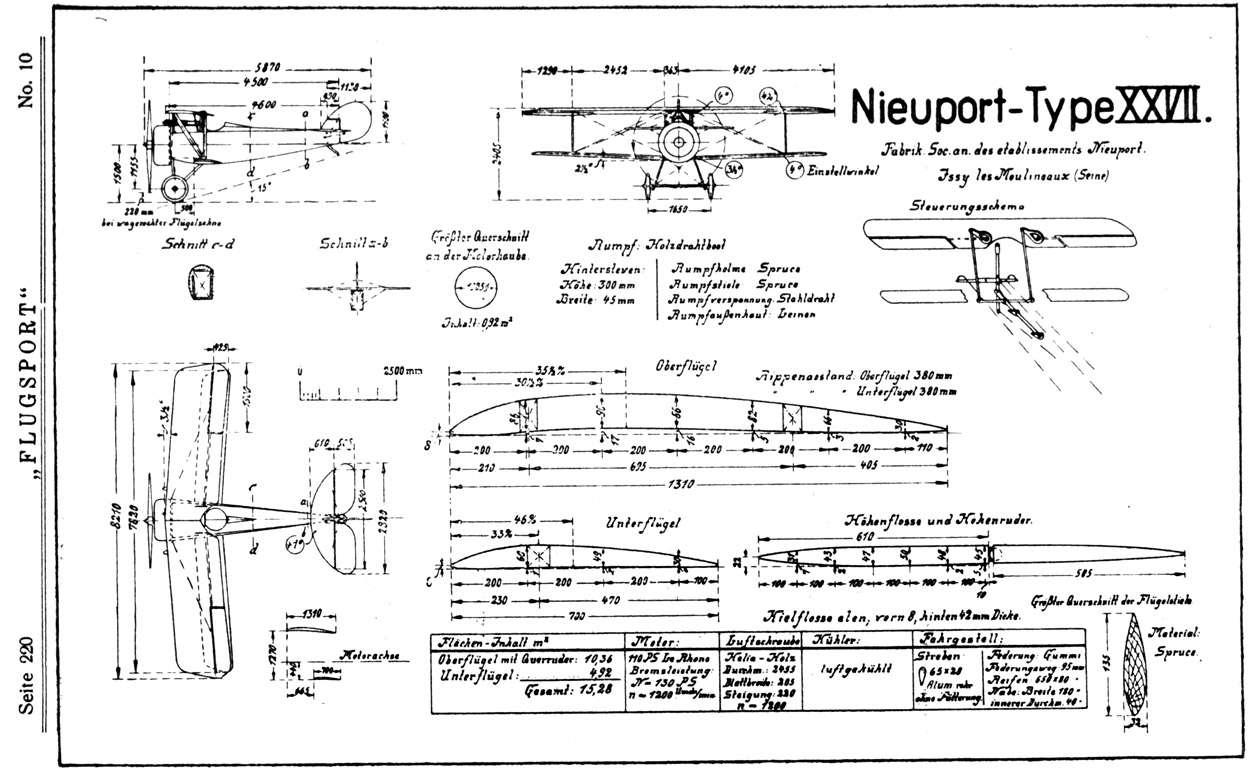 No. 10
„FLUGSPORT“
Seite 220
Nieuport-Type XXVII.
Fabrik Soc. an. des etablissements Nieuport.
Issy les Moulineaux (Seine)
5870
4500
4600
1500
1155
15°
500
220 mm
bei wagerechter Flügelsehne
1290
2452
4105
2405
4°
4°
Einstellwinkel
1650
Steuerungsschema
Schnitt c-d
Schnitt a-b
Größter Querschnitt
an der Motorhaube.
Inhalt: 0,92 m²
Rumpf: Holzdrahtboot
Hintersteven:
Höhe: 300 mm
Breite: 45 mm
Rumpfholme Spruce
Rumpfstiele Spruce
Rumpfverspannung: Stahldraht
Rumpfaußenhaut: Leinen
2500 mm
8210
7820
610
2320
Oberflügel
Rippenabstand: Oberflügel 380 mm
" " Unterflügel 380 mm
200
300
200
200
200
200
110
210
695
405
1310
Unterflügel
46%
33%
200
200
200
100
230
470
700
Höhenflosse und Höhenruder.
610
22
100
100
100
100
100
100
10
585
Kielflosse oben, vorn 8, hinten 42 mm Dicke.
1310
1270
Motorachse
Größter Querschnitt der Flügelstiele
Material:
Spruce.
155
32
Flächen-Inhalt m²
Oberflügel mit Querruder: 10,36
Unterflügel: 4,92
Gesamt: 15,28
Motor:
110 PS Le Rhone
Bremsleistung:
N = 130 PS
n = 1200 Umdr/min
Luftschraube
Helia-Holz
Durchm.: 2455
Blattbreite: 205
Steigung: 220
n = 1200
Kühler:
luftgekühlt
Fahrgestell:
Streben
65×28
Alum rohr
ohne Fütterung
Federung Gummi
Federungsweg 95 mm
Reifen 650×80
Nabe: Breite 180
innerer Durchm. 40